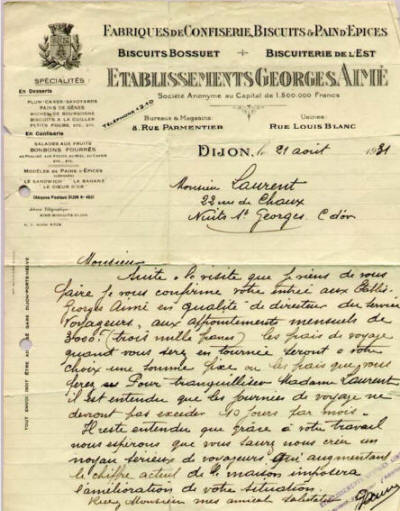 FABRIQUES DE CONFISERIE, BISCUITS & PAIN D'EPICES
BISCUITS BOSSUET + BISCUITERIE DE L'EST
ETABLISSEMENTS GEORGES AIMÉ
Société Anonyme au Capital de 1.500.000 Francs
TÉLÉPHONE 2-10
Bureaux & Magasins:
8, RUE PARMENTIER
Usines:
RUE LOUIS BLANC
SPÉCIALITÉS:
En Desserts
PAINS DE GÊNES
BISCUITS A LA CUILLER
PETITS FOURS, ETC., ETC.
En Confiserie
SALADES AUX FRUITS
BONBONS FOURRÉS
MODÈLES DE PAINS D'ÉPICES
LE SANDWICH LA BANANE
LE CŒUR D'OR
Adresse Télégraphique
DIJON, le 21 août 1931
Monsieur Laurent
22 rue de Chaux
Nuits St Georges, C. d'Or
Monsieur
Suite à la visite que je viens de vous
faire je vous confirme votre entrée aux Etabts
Georges Aimé en qualité de directeur du service
Voyageurs, aux appointements mensuels de
3000f (trois mille francs) les frais de voyage
quand vous serez en tournée seront à votre
choix une somme fixe ou les frais que vous
ferez. Pour tranquilliser Madame Laurent
il est entendu que les journées de voyage ne
devront pas excéder 10 jours par mois.
Il reste entendu que grâce à votre travail
nous espérons que vous saurez nous créer un
noyau sérieux de voyageurs qui augmentant
le chiffre actuel de la maison imposera
l'amélioration de votre situation.
Recevez Monsieur mes amicales salutations
TOUT ENVOI DOIT ÊTRE ADRESSÉ GARE DIJON-PORTE-NEUVE